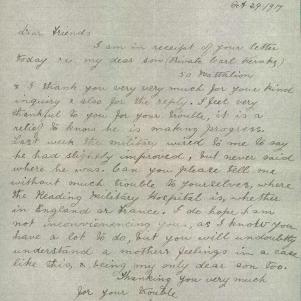 Oct 29 1917
dear Friends
I am in receipt of your letter
today re. my dear son (Private Carl
50 Battalion
& I thank you very very much for your kind
inquiry & also for the reply. I feel very
thankful to you for your trouble, it is a
relief to know he is making progress.
Last week the military wired to me to say
he had slightly improved, but never said
where he was. Can you please tell me
without much trouble to yourselves, where
the Reading Military Hospital is, whether
in England or France. I do hope I am
not inconveniencing you, as I know you
have a lot to do, but you will undoubtly
understand a mothers feelings in a case
like this, & being my only dear son too.
Thanking you very much
for your trouble